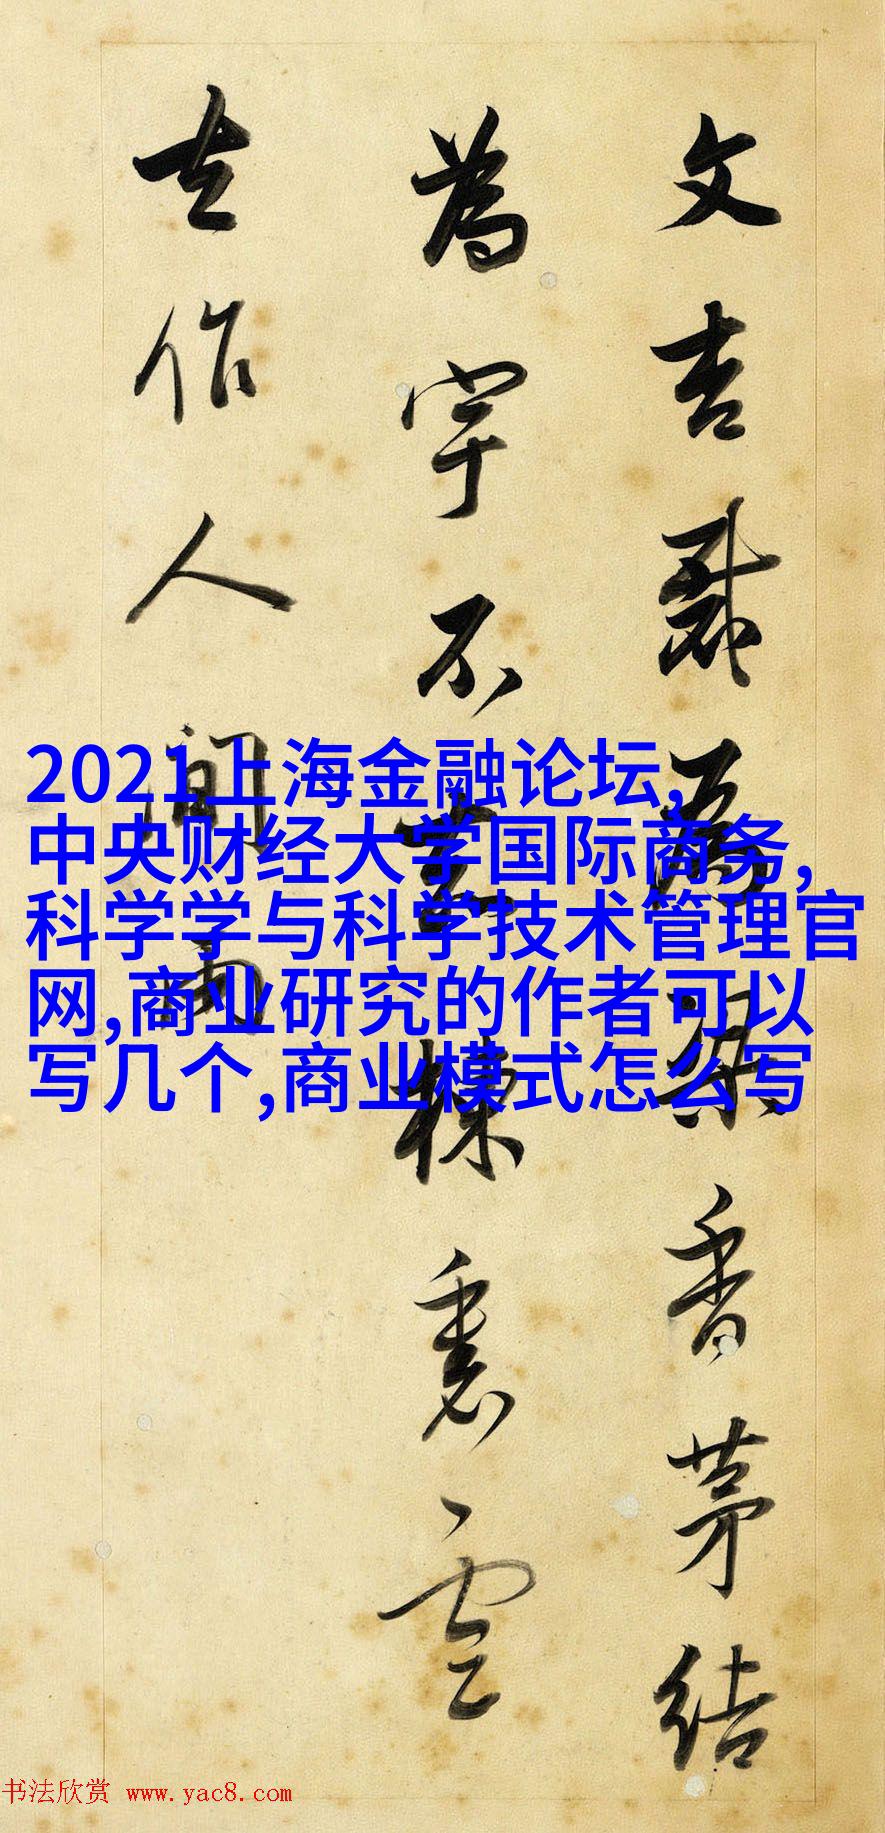 文杏裁為梁香茅結
為宇不知棟裏雲
去作人間雨
2021上海金融论坛,
中央财经大学国际商务,
科学学与科学技术管理官
网,商业研究的作者可以
写几个,商业模式怎么写
书法欣赏 www.yac8.com